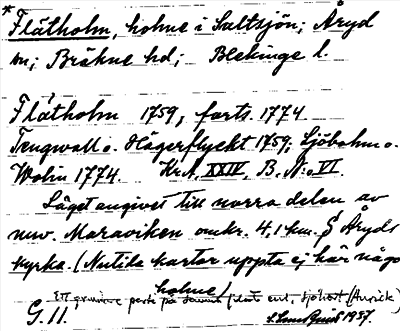 * Flåtholm, holme i Saltsjön; Åryd
sn; Bräkne hd; Blekinge l.
Flåtholm 1759, forts. 1774
Tengwall o. Hägerflyckt 1759; Sjöbohm o.
Wohn 1774. Kr.A. XXIV, B. N:o VI.
Läget angivet till norra delen av
nuv. Maraviken omkr. 4,1 km. S Åryds
kyrka. (Nutida kartor uppta ej här någo
holme)
på samma plats enl.
G. 11. 1937